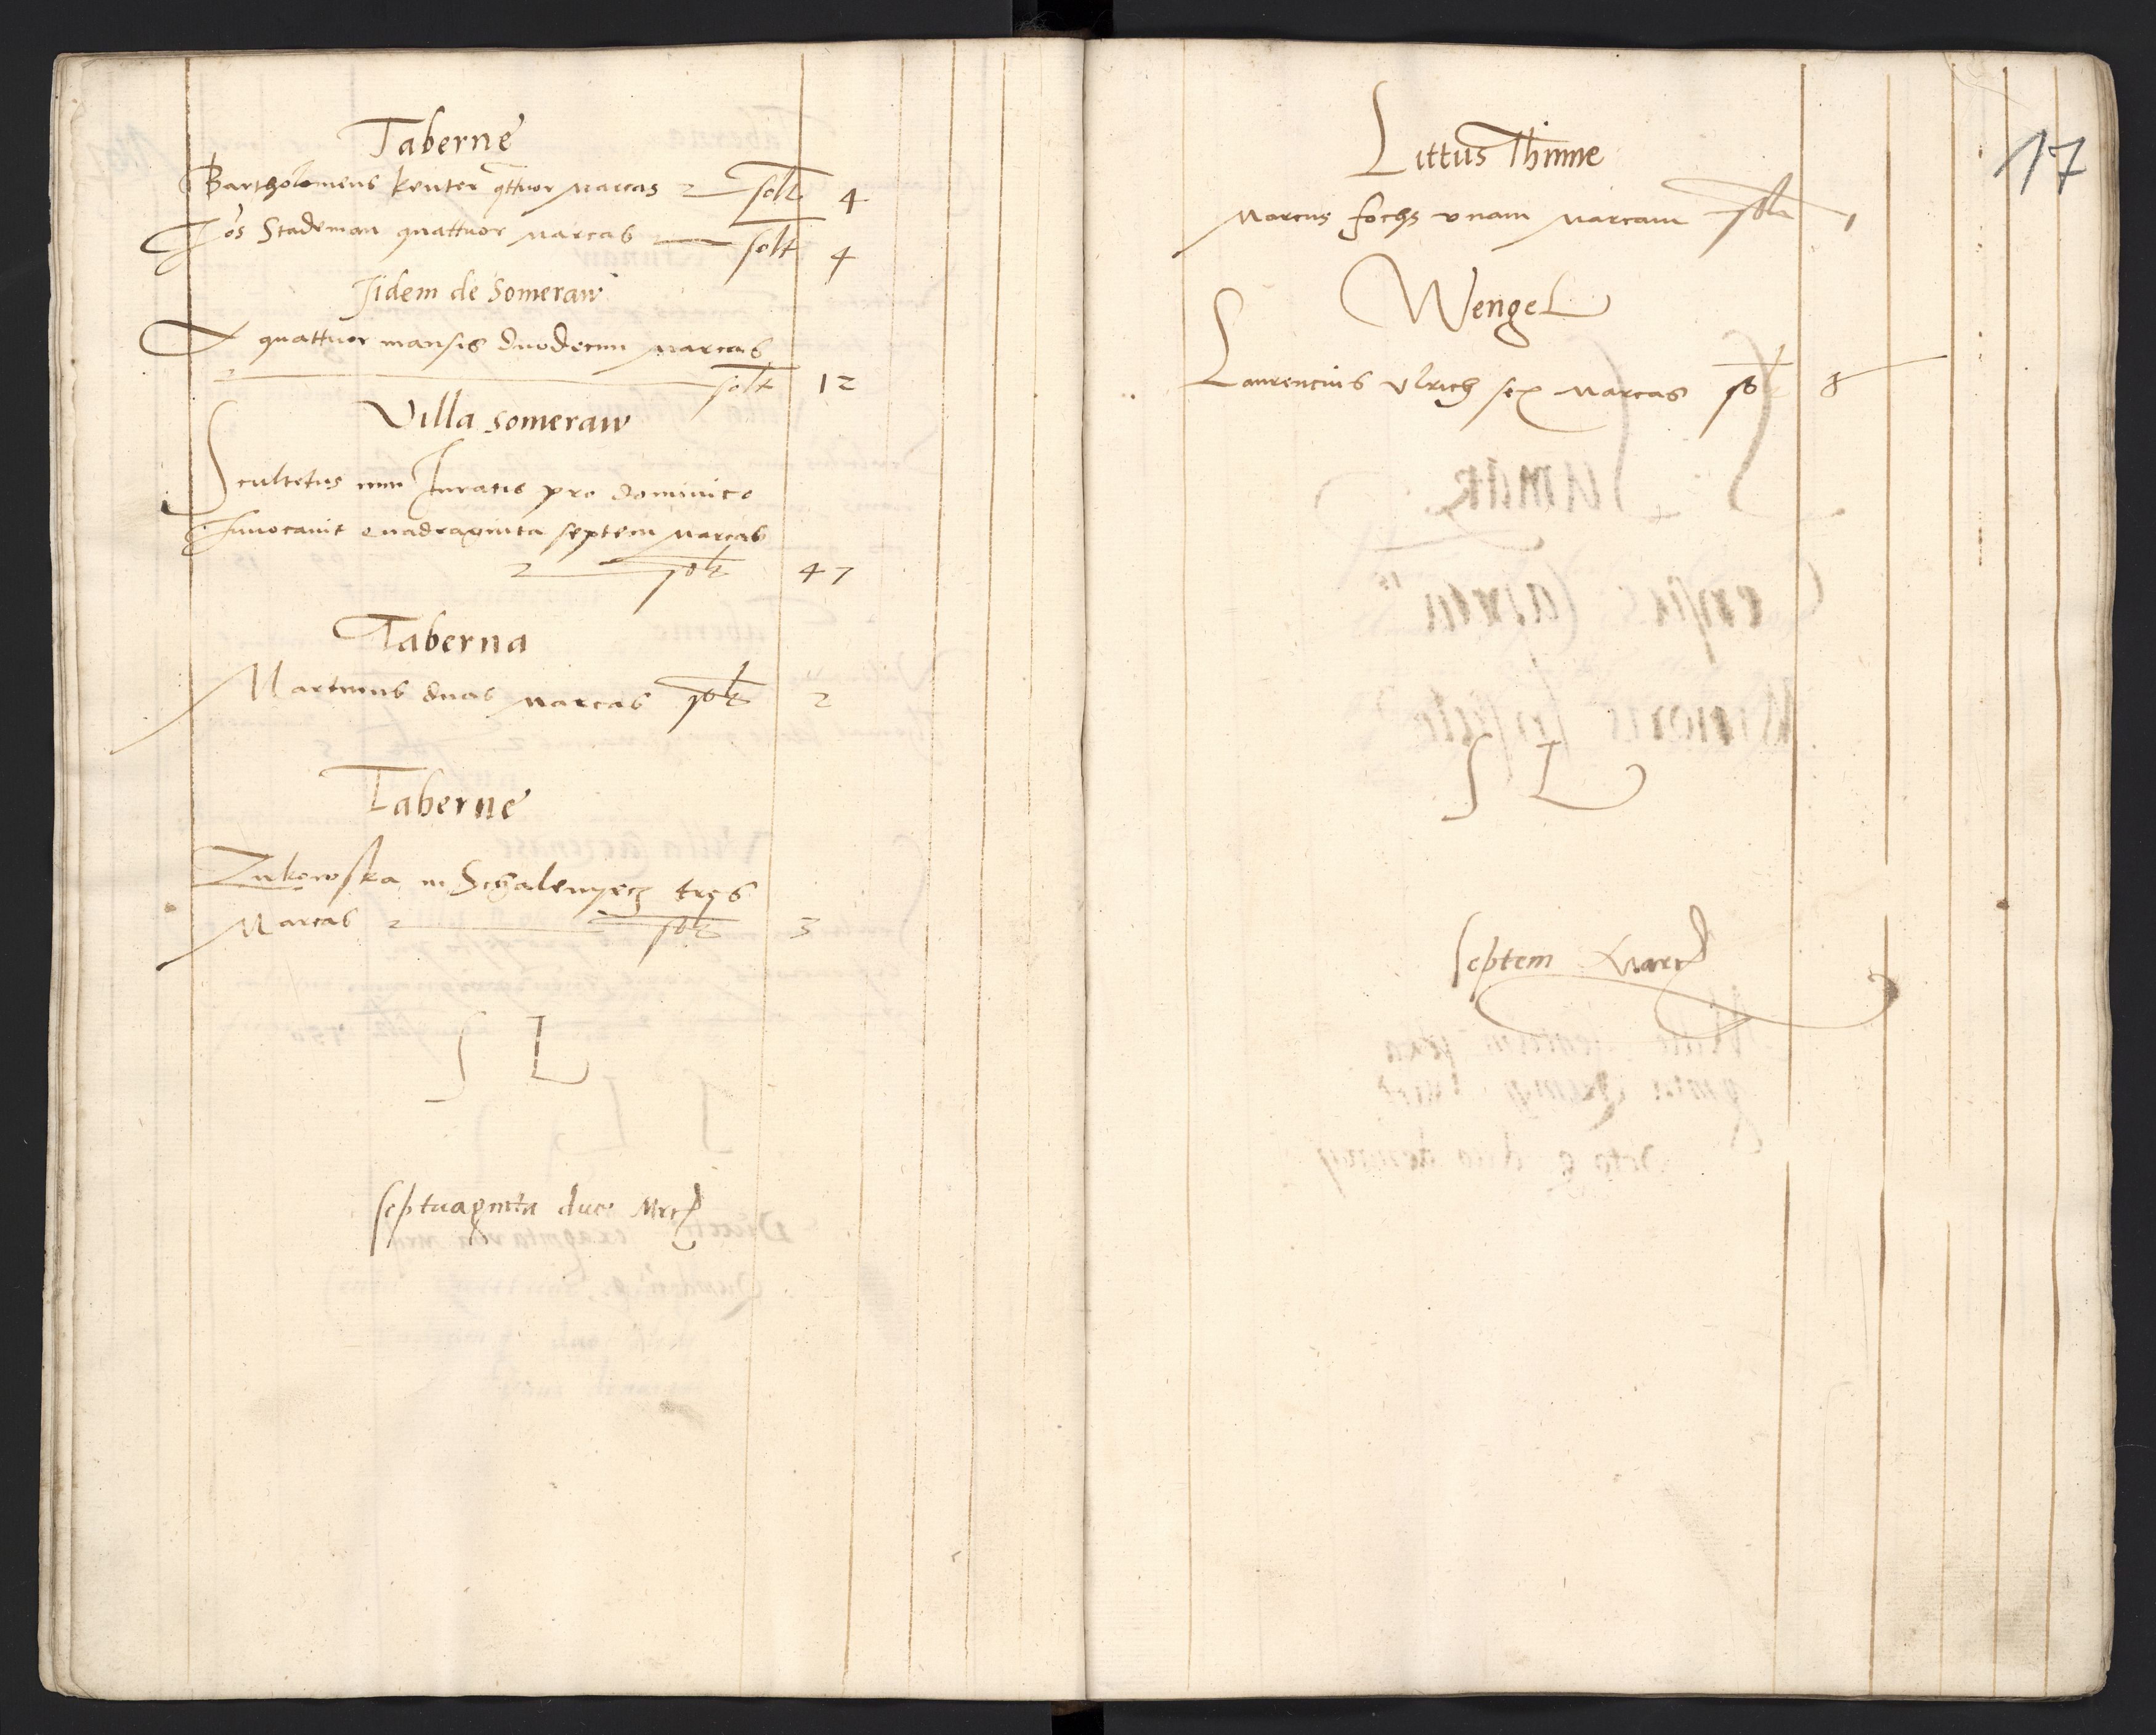 Taberne
Bartholomeus kenter qttuor marcas solt 4
Jos Stademan quattuor marcas solt 4
Iidem de Someraw
Ex quattuor mansis duodecim marcas
solt 12
Villa someraw
Scultetus cum Iuratis pro dominica
Invocavit quadraginta septem marcas
solt 47
Taberna
Martinus duas marcas solt 2
Taberne
Zukowska in Schalenyecz tres
Marcas solt 3
S L
septuaginta duas Mrc
17
Littus Thinne
Marcus fochs unam marcam solt 1
Wengel
Laurencius Ulrich sex marcas sol
S L
septem Marc